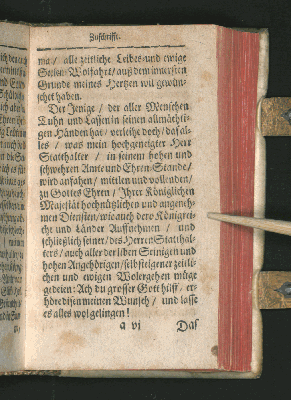 Zuschrifft.
ma/ alle zeitliche Leibes- und ewige
Seelen-Wolfahrt/ auß dem innersten
Grunde meines Hertzen wil gewün-
schet haben.
Der Jenige/ der aller Menschen
Tuhn und Lassen in seinen allmächti-
gen Händen hat/ verleihe doch/ daß al-
les/ was mein hochgeneigter Herr
Statthalter/ in seinem hohen und
schwehren Amte und Ehren-Stande/
wird anfahen/ mitlen und vollenden/
zu Gottes Ehren/ Ihrer Königlichen
Majestät hochnützlichen und angeneh-
men Diensten/ wie auch dero Königrei-
che und Länder Auffnehmen/ und
schließlich seiner/ des Herren Statthal-
ters/ auch aller der lieben Seinigen und
hohen Angehörigen/ selbsteigener zeitli-
chen und ewigen Wolergehen müge
gedeien: Ach du grosser Gott hilf/ er-
höre disen meinen Wunsch/ und lasse
es alles wol gelingen!
a vj
Das